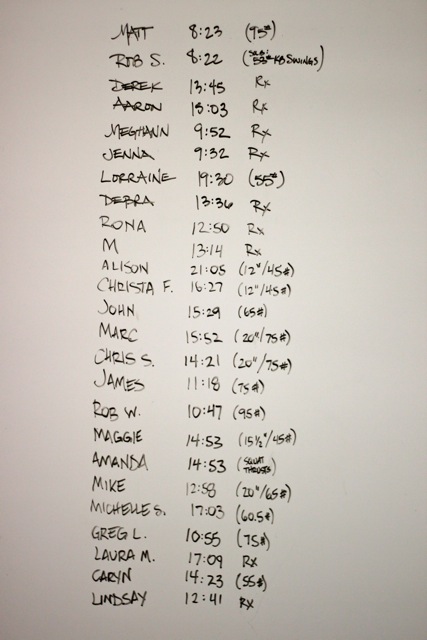 MATT 8:23 (95#)
ROB S. 8:22 (SUB: 53# KB SWINGS)
DEREK 13:45 Rx
AARON 15:03 Rx
MEGHANN 9:52 Rx
JENNA 9:32 Rx
LORRAINE 19:30 (55#)
DEBRA 13:36 Rx
RONA 12:50 Rx
M 13:14 Rx
ALISON 21:05 (12"/45#)
CHRISTA F. 16:27 (12"/45#)
JOHN 15:29 (65#)
MARC 15:52 (20"/75#)
CHRIS S. 14:21 (20"/75#)
JAMES 11:18 (75#)
ROB W. 10:47 (95#)
MAGGIE 14:53 (15½"/45#)
AMANDA 14:53 (SQUAT THRUSTS)
MIKE 12:58 (20"/65#)
MICHELLE S. 17:03 (60.5#)
GREG L. 10:55 (75#)
LAURA M. 17:09 Rx
CARYN 14:23 (55#)
LINDSAY 12:41 Rx